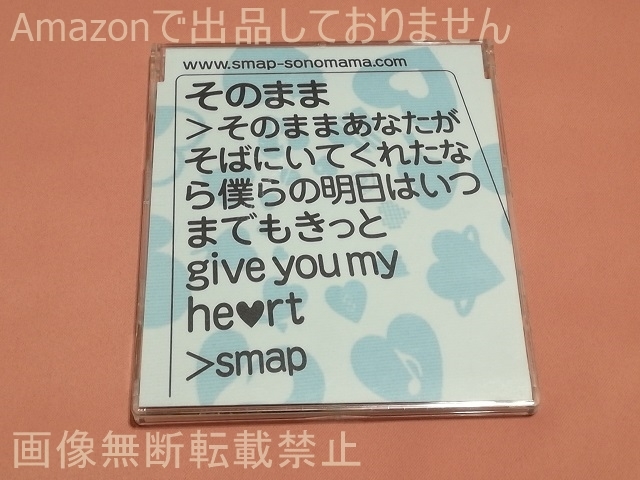 Amazonで出品しておりません
www.smap-sonomama.com
そのまま
>そのままあなたが
そばにいてくれたな
ら僕らの明日はいつ
までもきっと
give you my
he♥rt
>smap
画像無断転載禁止